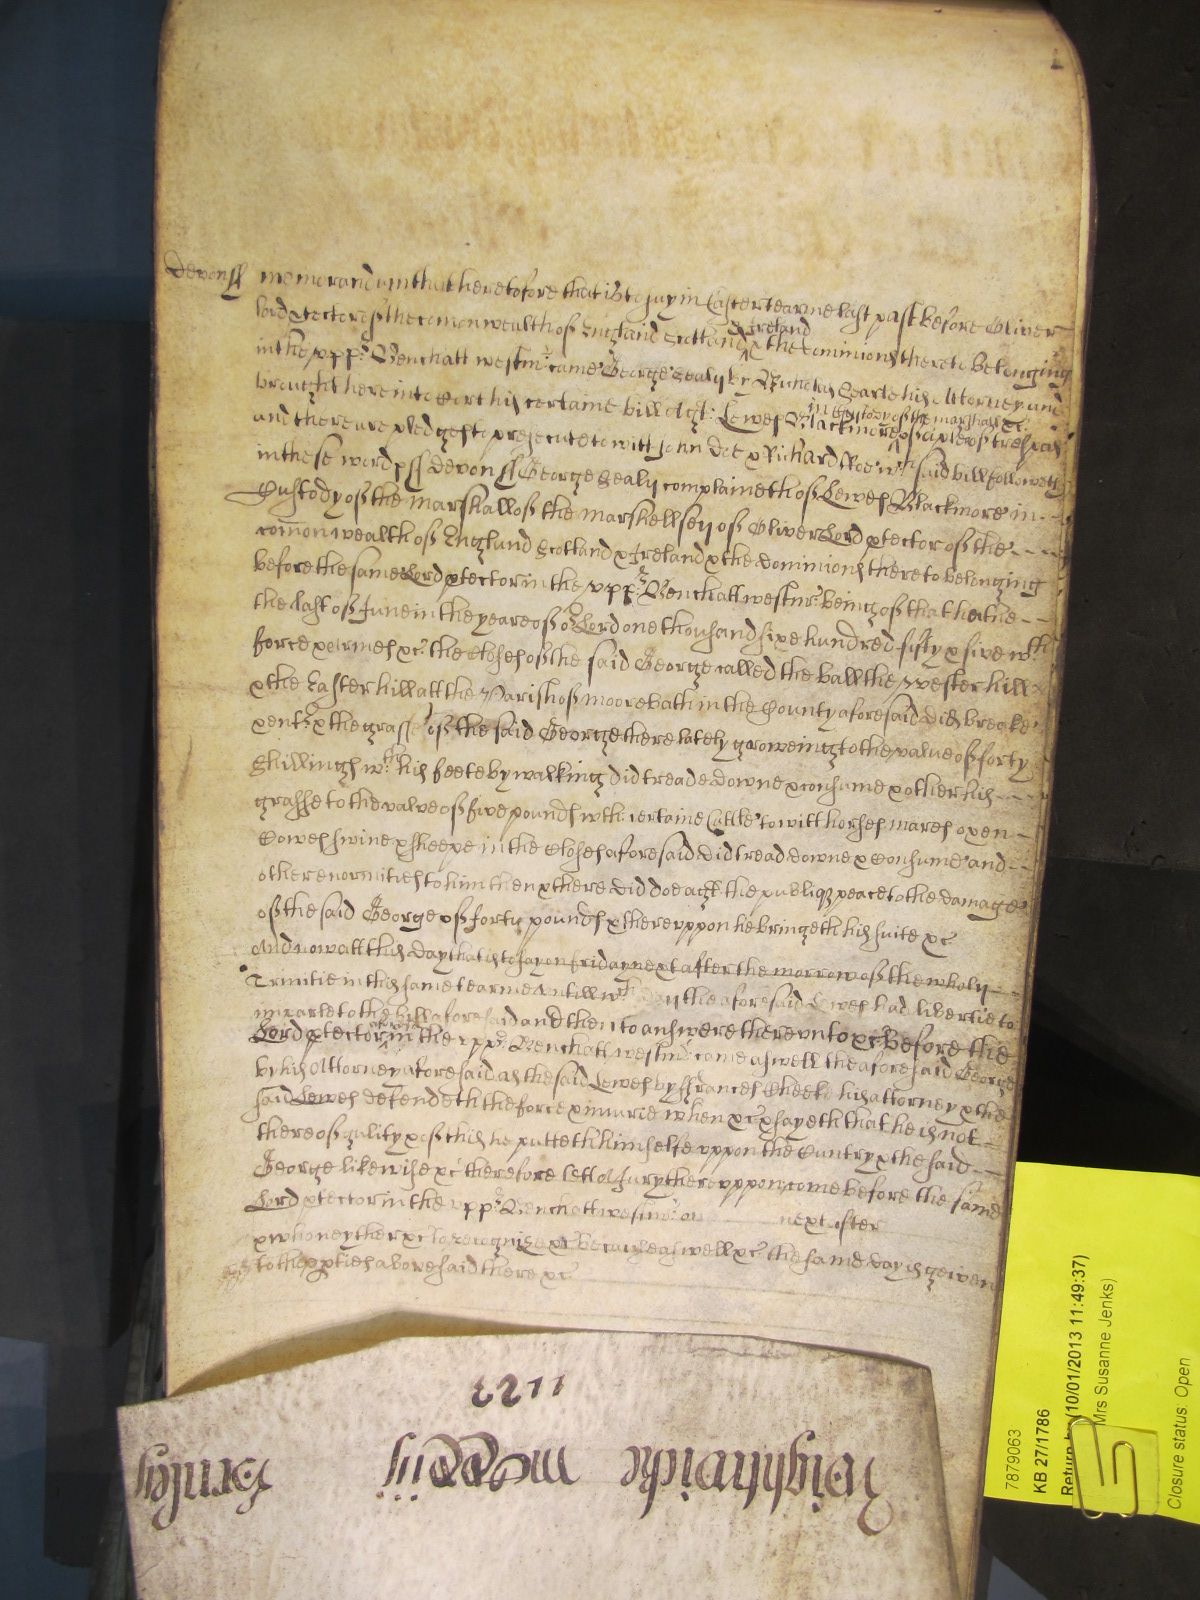 Devon ss
memorandum that heretofore that is to say in Easter tearme last past before Oliver
lord ptector of the comonwealth of England Scotland & Ireland & the dominions thereto belonging
in the vpp Bench att westmr came George Sealy by his Attorney and
brought here into Cort his certaine bill agt: Lewes Blackmore in Custody of the marshall &c of a plea of trespas
and there are pledges to prosecute to witt John Doe & Richard Roe wch said bill followeth
in these words ss devon ss George Sealy complaineth of Lewes Blackmore in
Custody of the marshall of the marshellsey of Oliver Lord ptector of the
comonwealth of England Scotland & Ireland & the dominions thereto belonging
before the same Lord ptector in the vppr Bench att westmr being of that that he
the last of June in the yeare of or Lord one thousand sixe hundred fifty & five wth
force & armes &c the closes of the said George called the ball the wester hill
& the Easter hill att the Parish of moorebath in the County aforesaid did breake
& entr & the grasse of the said George there lately groweing to the value of forty
shillings wth his feete by walking did treade downe & consume & other his
grasse to the value of five pounds wth certaine Cattle to witt horses mares oxen
Cowes swine & sheepe in the closes aforesaid did tread downe & Consume and
other enormities to him then & there did doe agt the publiq peace to the damage
of the said George of forty pounds & therevppon he bringeth his suite &c
And now att this day that is to say on friday next after the morrow of the wholy
Trinitie in this same tearme vntill wch day the aforesaid Lewes had libertie to
imparle to the bill aforesaid and then to answere therevnto &c before the
Lord ptector in the vppr Bench att westmr came aswell the aforesaid George
by his Attorney aforesaid as the said Lewes by ffrances his attorney & the
said Lewes defendeth the force & iniurie when &c & sayeth that he is not
thereof guilty & of this he putteth himselfe vppon the Cuntry & the said
George likewise &c therefore lett A Jury therevppon come before the same
Lord ptector in the vppr Bench att westmr on next after
& who neyther &c to recognize &c because aswell &c the same day is geiven
to the pties abovesaid there &c
1123
Wightwicke
fernley
7879063
KB 27/1786
(10/01/2013 11:49:37)
Mrs Susanne Jenks)
Closure status: Open